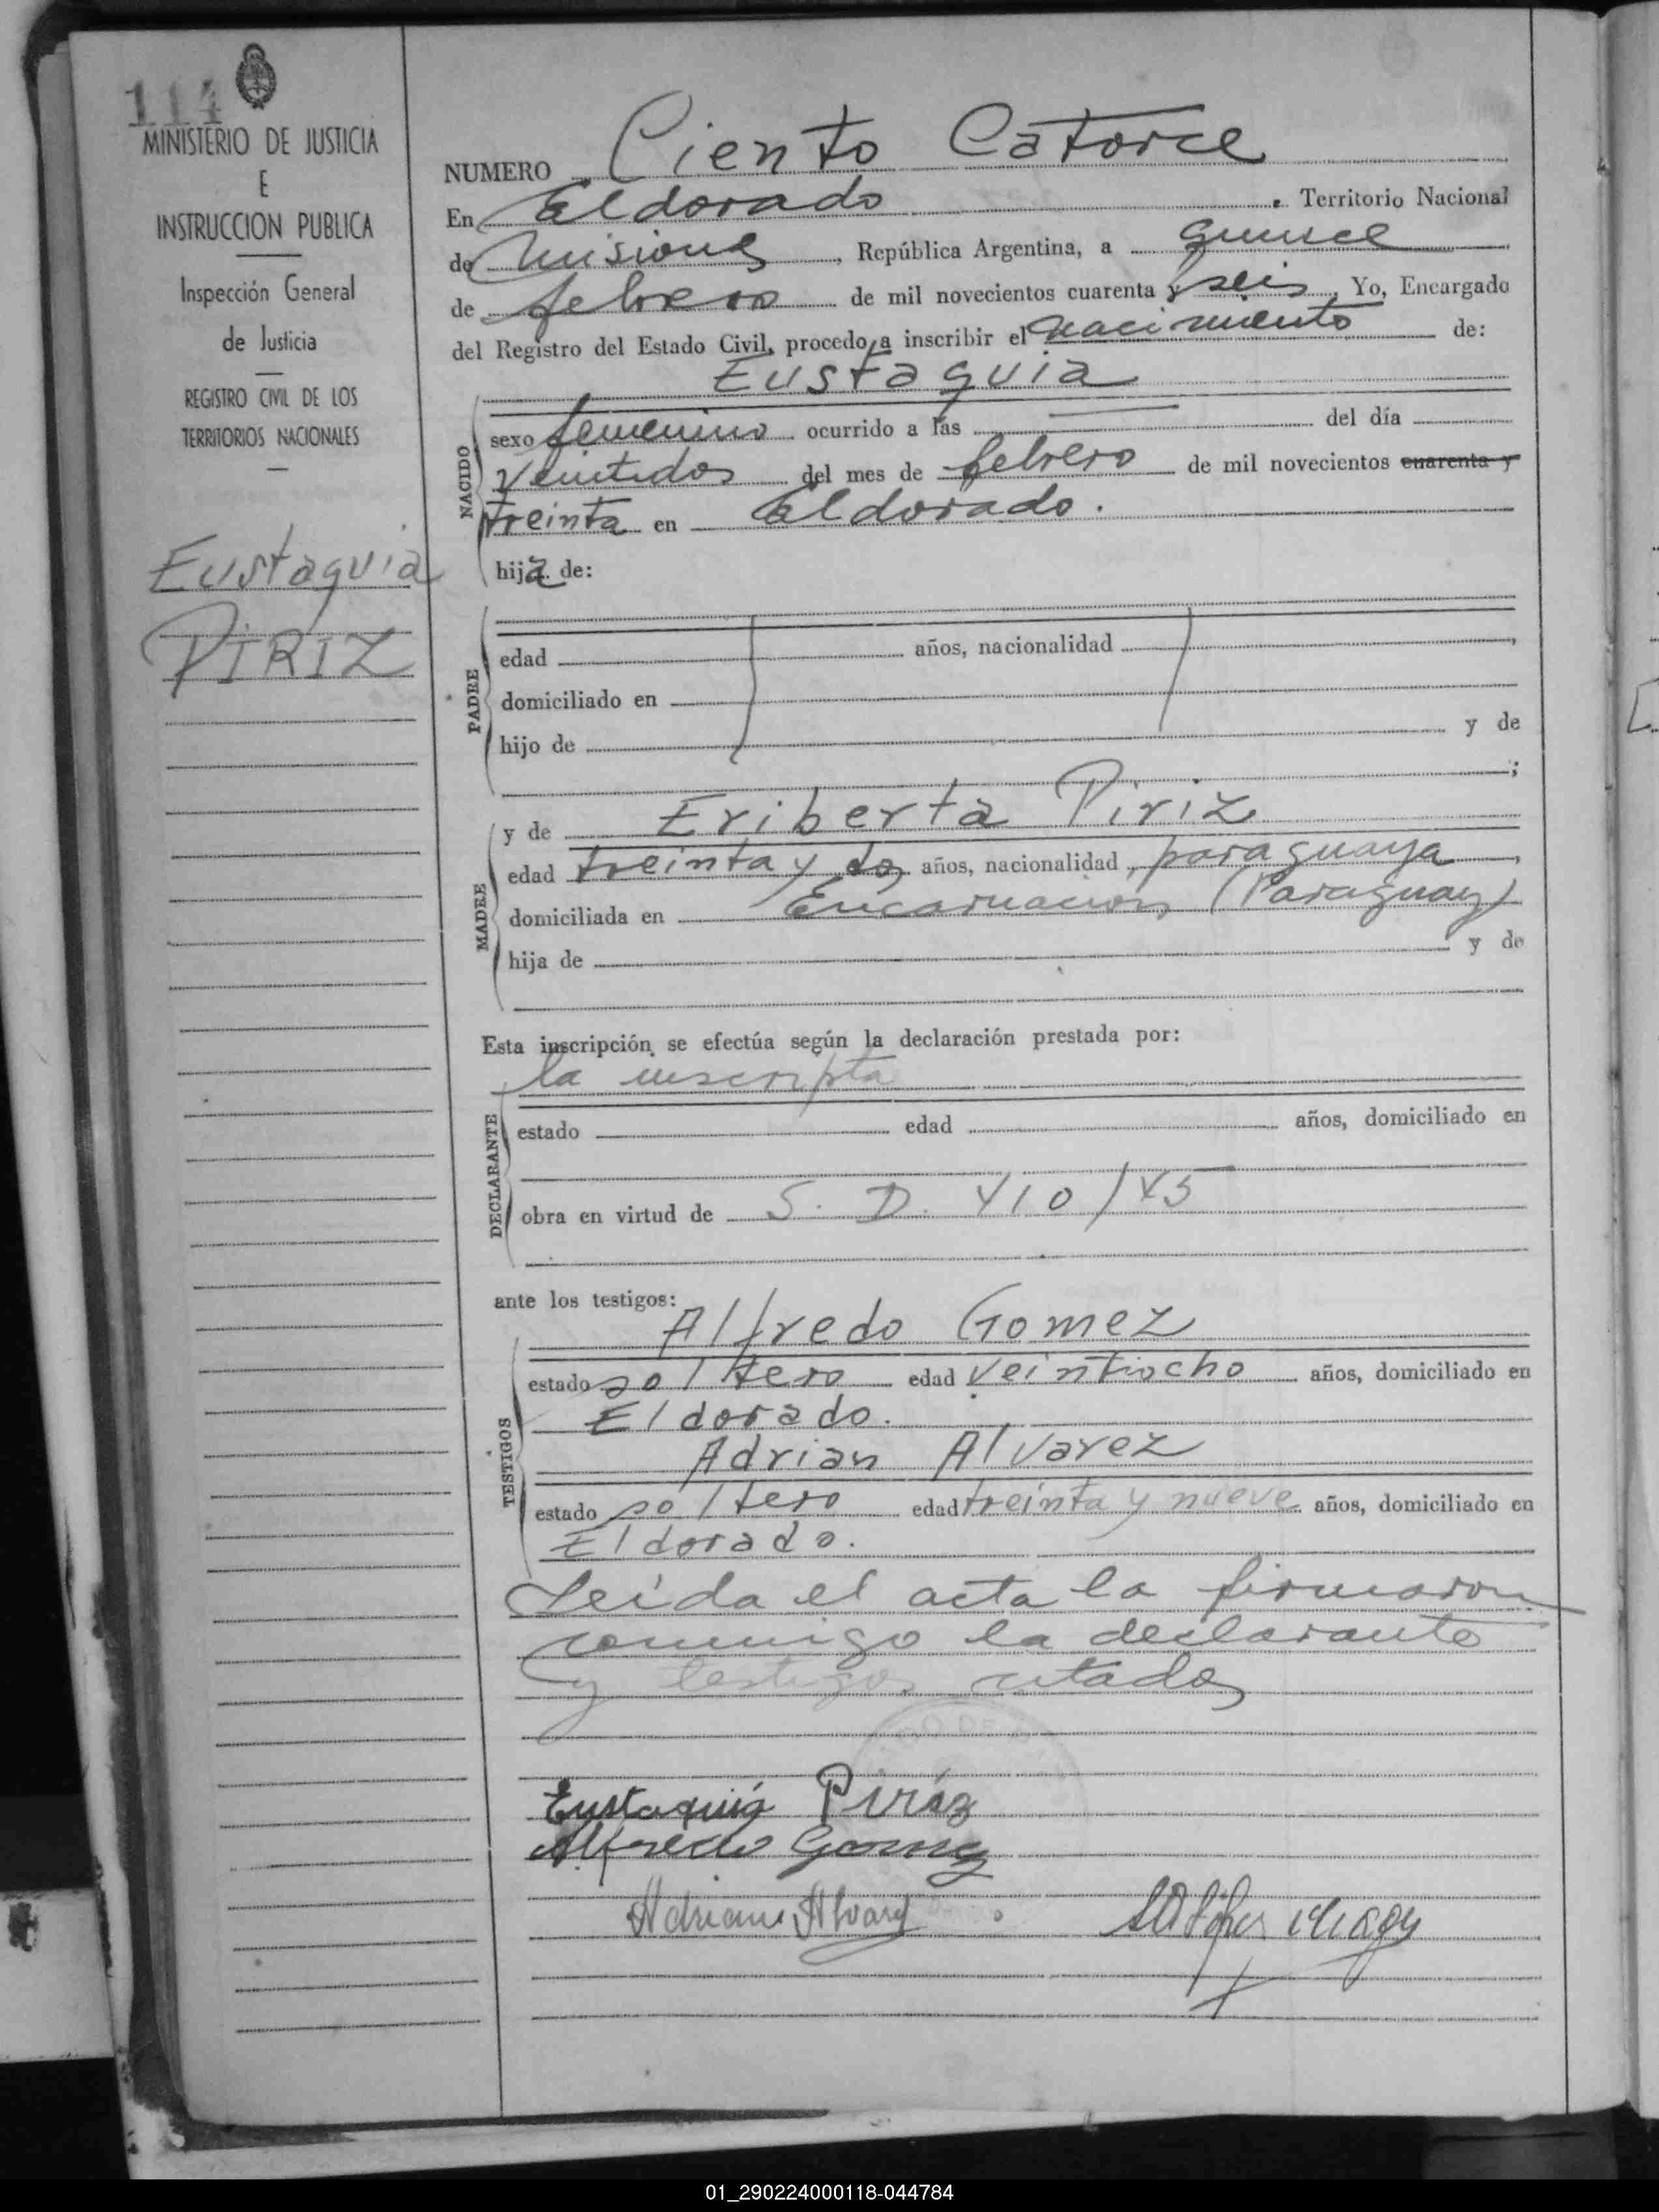 114
MINISTERIO DE JUSTICIA
E
INSTRUCCION PUBLICA
Inspección General
de Justicia
REGISTRO CIVIL DE LOS
TERRITORIOS NACIONALES
Eustaquia
PIRIZ
NUMERO Ciento Catorce
En Eldorado, Territorio Nacional
de Misiones, República Argentina, a quince
de febrero de mil novecientos cuarenta y seis, Yo, Encargado
del Registro del Estado Civil, procedo a inscribir el nacimiento de:
Eustaquia
NACIDO
sexo femenino ocurrido a las del día
veintidos del mes de febrero de mil novecientos cuarenta y
treinta en Eldorado.
hija de:
PADRE
edad años, nacionalidad ,
domiciliado en
hijo de y de
;
MADRE
y de Eriberta Piriz
edad treinta y dos años, nacionalidad, paraguaya,
domiciliada en Encarnacion (Paraguay)
hija de y de
Esta inscripción se efectúa según la declaración prestada por:
la inscripta
DECLARANTE
estado edad años, domiciliado en
obra en virtud de S. D. 410/45
ante los testigos:
Alfredo Gomez
TESTIGOS
estado soltero edad veintiocho años, domiciliado en
Eldorado.
Adrian Alvarez
estado soltero edad treinta y nueve años, domiciliado en
Eldorado.
Leída el acta la firmaron
conmigo la declarante
y testigos citados
Eustaquia Piriz
Alfredo Gomez
Adriano Alvarez
01_290224000118-044784